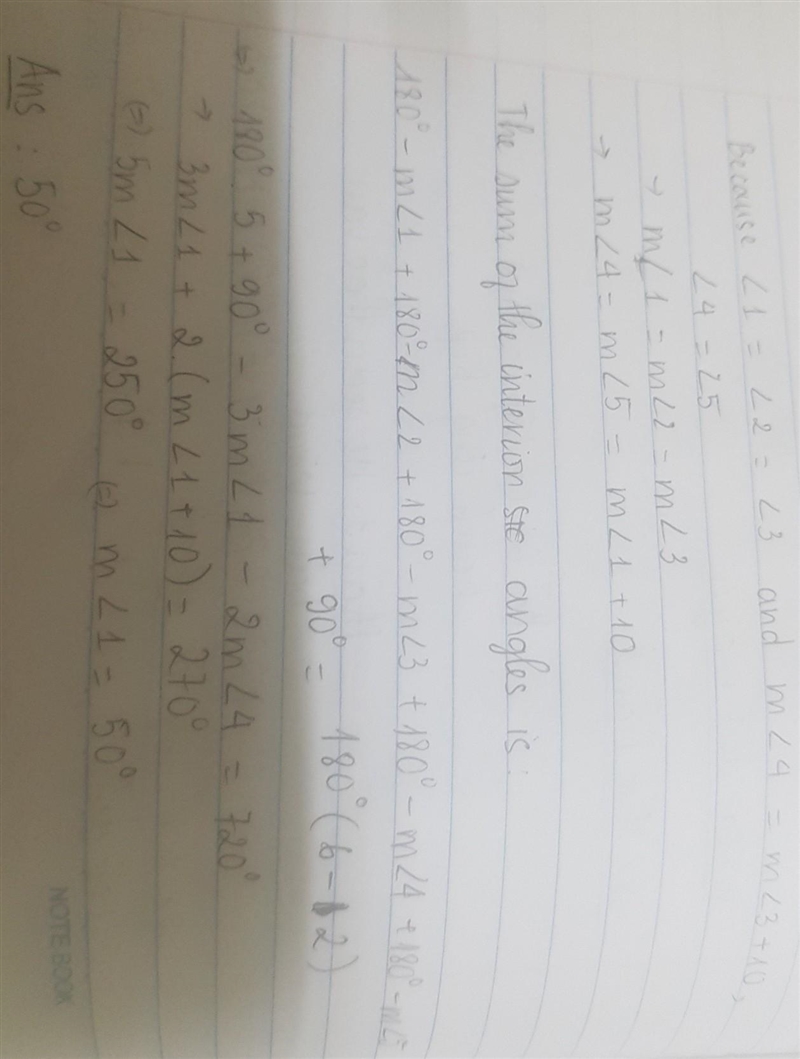 Because ∠1 = ∠2 = ∠3 and m∠4 = m∠3+10,
∠4 = ∠5
→ m∠1 = m∠2 = m∠3
→ m∠4 = m∠5 = m∠1 + 10
The sum of the interior angles is:
180° - m∠1 + 180° - m∠2 + 180° - m∠3 + 180° - m∠4 + 180° - m∠5
+ 90° = 180°(6-2)
⇔ 180°.5 + 90° - 3m∠1 - 2m∠4 = 720°
→ 3m∠1 + 2.(m∠1+10) = 270°
⇔ 5m∠1 = 250° ⇔ m∠1 = 50°
Ans : 50°
NOTEBOOK